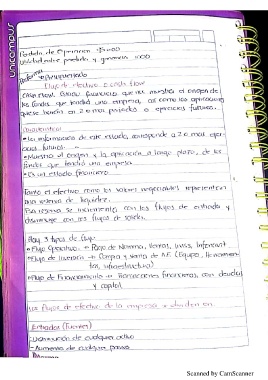 unicampus
Perdida de Operacion
Utilidad entre perdida y ganancia
Flujo de efectivo o cash flow
Cash Flow. Estado financiero que nos muestra el origen de
los fondos que tendrá una empresa, así como las aplicaciones
que se harán en 2 o mas periodos o ejercicios futuros.
Características
•La informacion de este estado, corresponde a 2 o mas ejer-
cicios futuros.
•Muestra el origen y la aplicación a largo plazo, de los
fondos que tendrá una empresa
•Es un estado financiero
Tanto el efectivo como los valores negociables representan
una reserva de liquidez.
Esa reserva se incrementa con los flujos de entrada y
disminuye con los flujos de salida.
Hay 3 tipos de flujo
•Flujo Operativo → Pago de Nomina, Ventas,
•Flujo de Inversión → Compra y venta de A.F. (Equipo,
infraestructura)
•Flujo de Financiamiento → Transacciones financieras, con deudas
y capital
Los flujos de efectivo de la empresa se dividen en
Entradas (Fuentes)
-Disminución de cualquier activo
-Aumento de cualquier pasivo
Scanned by CamScanner